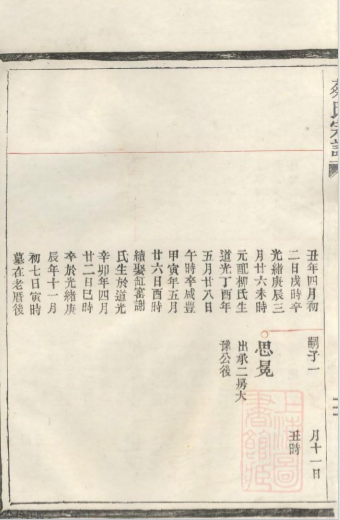 氏宗譜
丑年四月初
二日戌時卒
光緒庚辰三
月廿六未時
元配柳氏生
道光丁酉年
五月廿八日
午時卒咸豐
甲寅年五月
廿六日酉時
續娶缸窰謝
氏生於道光
辛卯年四月
廿二日巳時
卒於光緒庚
辰年十一月
初七日寅時
墓在老厝後
嗣子一
思冕
出承二房大
豫公後
月十一日
丑時
上海圖
書館藏